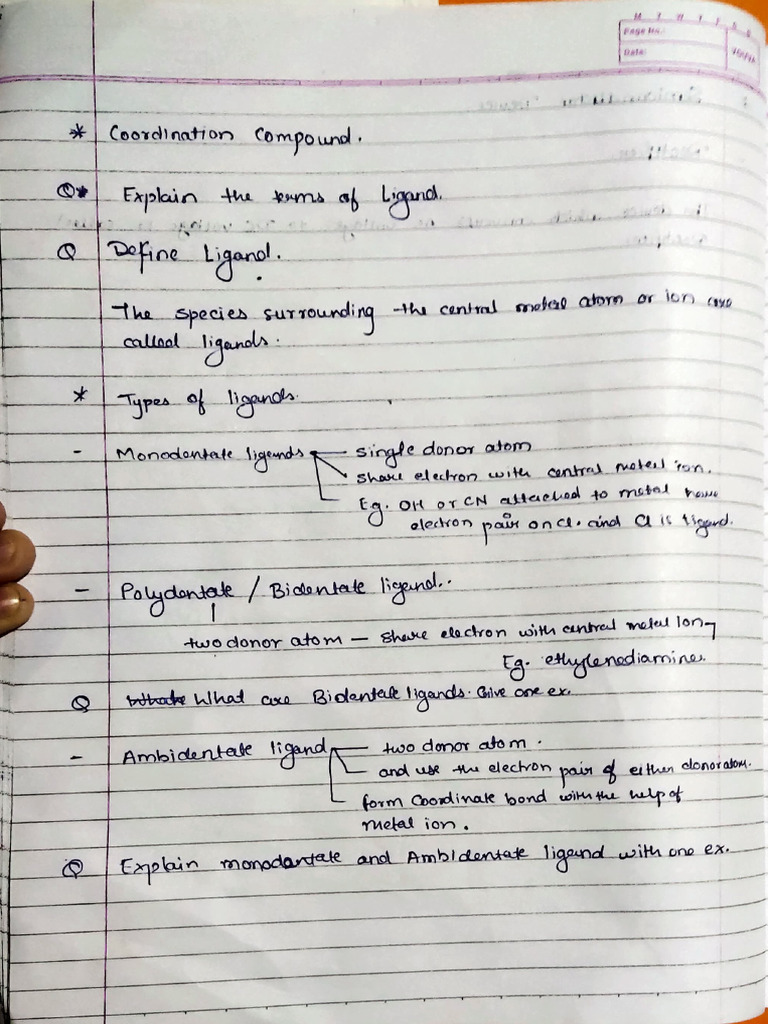 M T W T F S S
Page No.:
Date:
YOUVA
* Coordination Compound.
Q* Explain the terms of Ligand.
Q Define Ligand.
The species surrounding the central metal atom or ion are
called ligands.
* Types of ligands.
- Monodentate ligands — single donor atom
share electron with central metal ion.
Eg. OH or CN attached to metal have
electron pair on Cl. and Cl is ligand.
- Polydentate / Bidentate ligand..
two donor atom — share electron with central metal Ion
Eg. ethylenediamine.
Q What are Bidentate ligands. Give one ex.
- Ambidentate ligand — two donor atom.
- and use the electron pair of either donor atom.
form Coordinate bond with the help of
metal ion.
Q Explain monodantate and Ambidentate ligand with one ex.